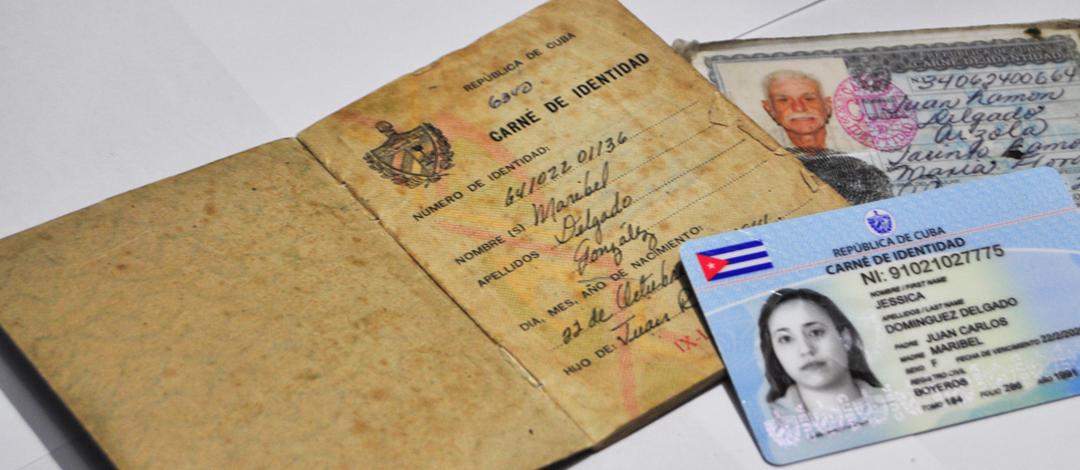 REPÚBLICA DE CUBA
CARNÉ DE IDENTIDAD
NÚMERO DE IDENTIDAD: 641022 01136
NOMBRE (S) Maribel
APELLIDOS Delgado
González
DÍA, MES, AÑO DE NACIMIENTO:
22 de Octubre
HIJO DE: Juan R
IX-
34062400664
Juan Ramon
Delgado
Arzola
Jacinto Ramo
Maria
REPÚBLICA DE CUBA
CARNÉ DE IDENTIDAD
NI: 91021027775
NOMBRE / FIRST NAME
JESSICA
APELLIDOS / LAST NAME
DOMINGUEZ DELGADO
PADRE JUAN CARLOS
MADRE MARIBEL
SEXO F FECHA DE VENCIMIENTO
REGISTRO CIVIL
BOYEROS
TOMO 184 FOLIO 286 AÑO 1991